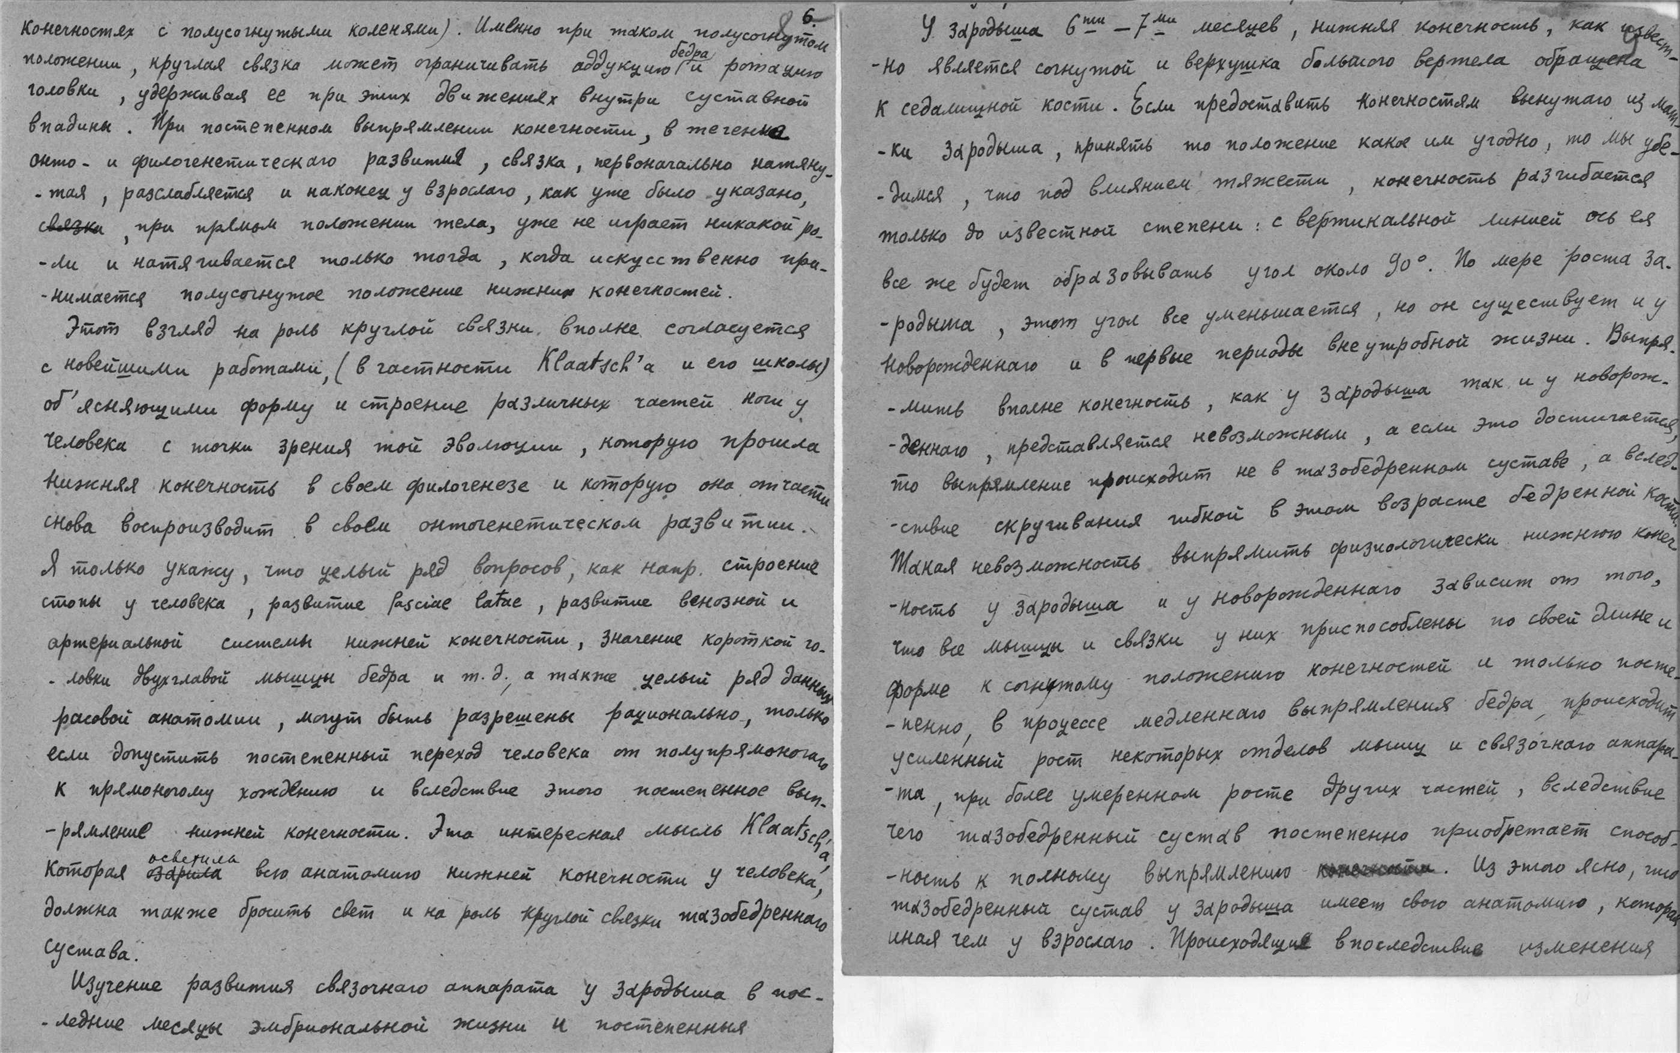 6.
конечностях с полусогнутыми коленями). Именно при таком полусогнутом
положении, круглая связка может ограничивать аддукцию бедра и ротацию
головки, удерживая ее при этих движениях внутри суставной
впадины. При постепенном выпрямлении конечности, в течение
онто- и филогенетическаго развития, связка, первоначально натяну-
-тая, разслабляется и наконец у взрослаго, как уже было указано,
связка, при прямом положении тела, уже не играет никакой ро-
-ли и натягивается только тогда, когда искусственно при-
-нимается полусогнутое положение нижних конечностей.
Этот взгляд на роль круглой связки вполне согласуется
с новейшими работами, (в частности Klaatsch'а и его школы)
об'ясняющими форму и строение различных частей ноги у
человека с точки зрения той эволюции, которую прошла
нижняя конечность в своем филогенезе и которую она отчасти
снова воспроизводит в своем онтогенетическом развитии.
Я только укажу, что целый ряд вопросов, как напр. строение
стопы у человека, развитие fasciae latae, развитие венозной и
артериальной системы нижней конечности, значение короткой го-
-ловки двухглавой мышцы бедра и т.д., а также целый ряд данных
расовой анатомии, могут быть разрешены рационально, только
если допустить постепенный переход человека от полупрямоногаго
к прямоногому хождению и вследствие этого постепенное вып-
-рямление нижней конечности. Эта интересная мысль Klaatsch'а,
которая озарила осветила всю анатомию нижней конечности у человека,
должна также бросить свет и на роль круглой связки тазобедреннаго
сустава.
Изучение развития связочнаго аппарата у зародыша в пос-
-ледние месяцы эмбриональной жизни и постепенныя
У зародыша 6ти – 7ми месяцев, нижняя конечность, как извест-
-но является согнутой и верхушка большого вертела обращена
к седалищной кости. Если предоставить конечностям вынутаго из мат-
-ки зародыша, принять то положение какое им угодно, то мы убе-
-димся, что под влиянием тяжести, конечность разгибается
только до известной степени: с вертикальной линией ось ея
все же будет образовывать угол около 90°. По мере роста за-
-родыша, этот угол все уменьшается, но он существует и у
новорожденнаго и в первые периоды внеутробной жизни. Выпря-
-мить вполне конечность, как у зародыша так и у новорож-
-деннаго, представляется невозможным, а если это достигается,
то выпрямление происходит не в тазобедренном суставе, а вслед-
-ствие скручивания гибкой в этом возрасте бедренной кости.
Такая невозможность выпрямить физиологически нижнюю конеч
-ность у зародыша и у новорожденнаго зависит от того,
что все мышцы и связки у них приспособлены по своей длине и
форме к согнутому положению конечностей и только посте-
-пенно, в процессе медленнаго выпрямления бедра, происходит
усиленный рост некоторых отделов мышц и связочнаго аппара-
-та, при более умеренном росте других частей, вследствие
чего тазобедренный сустав постепенно приобретает способ-
-ность к полному выпрямлению конечности. Из этого ясно, что
тазобедренный сустав у зародыша имеет свою анатомию, которая
иная чем у взрослаго. Происходящие впоследствие изменения